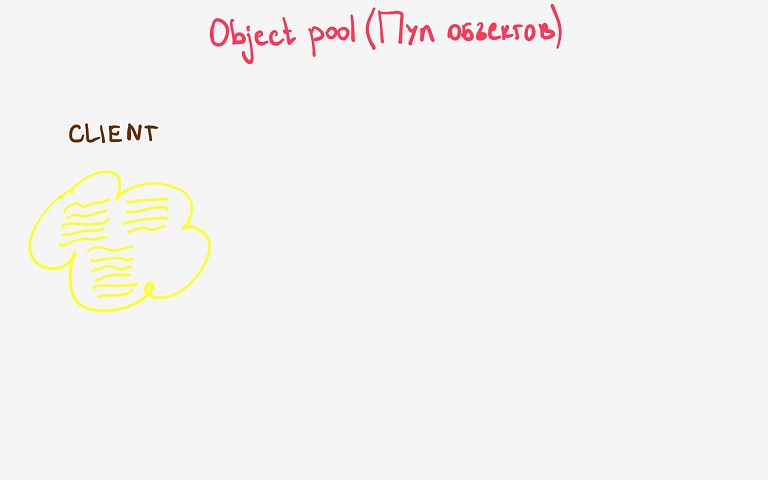 Object pool (Пул объектов)
CLIENT